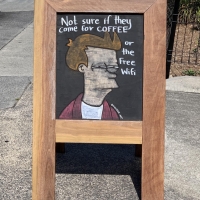 Not sure if they
come for COFFEE
or
the
Free
Wifi